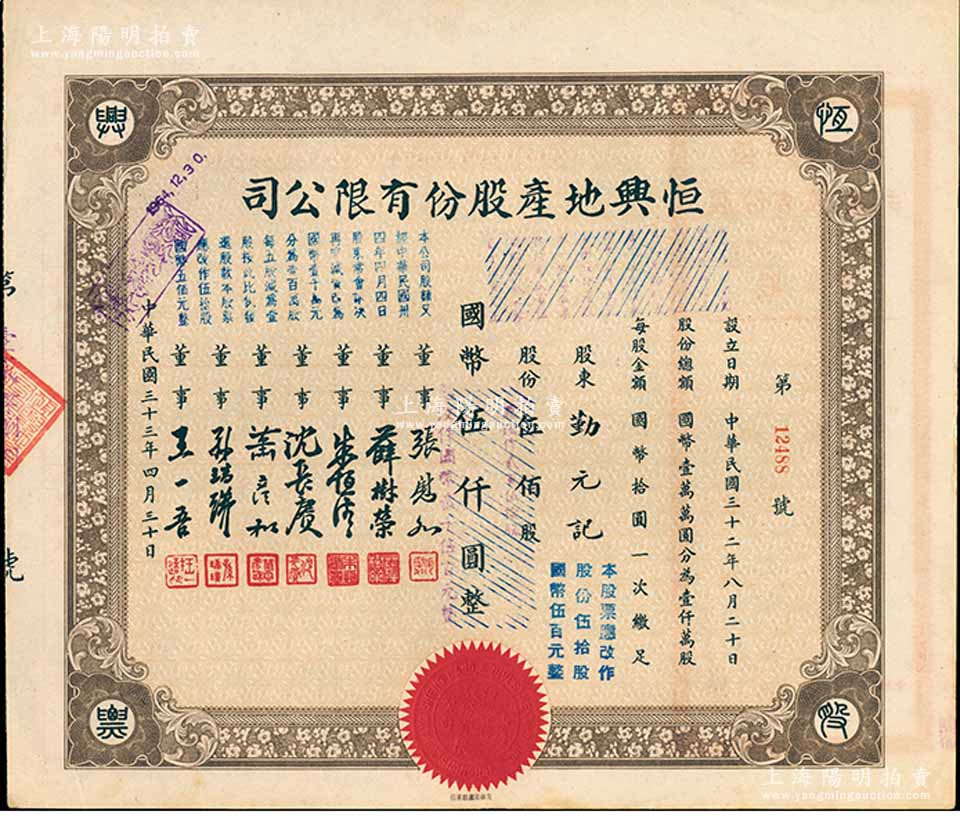 上海陽明拍賣
www.yangmingauction.com
恒
興
恒興地產股份有限公司
第 12488 號
設立日期 中華民國三十二年八月二十日
股份總額 國幣壹萬萬圓分為壹仟萬股
每股金額 國幣拾圓 一次繳足
股東 勤元記
本股票應改作
股份伍拾股
國幣伍百元整
股份 伍佰股
國幣 伍仟圓整
本公司股額又
經中華民國卅
四年四月四日
股東常會議決
再申減資改為
國幣壹千萬元
分為壹百萬股
每五股減為壹
還股款本股票
應改作伍拾股
國幣五佰元整
董事 張慰如
董事 薛樹榮
董事
董事 沈長賡
董事
董事 孫瑞璜
董事 王一吾
中華民國三十三年四月三十日
1954.12.30.
第
號
上海陽明拍賣
www.yangmingauction.com
上海陽明拍賣
www.yangmingauction.com